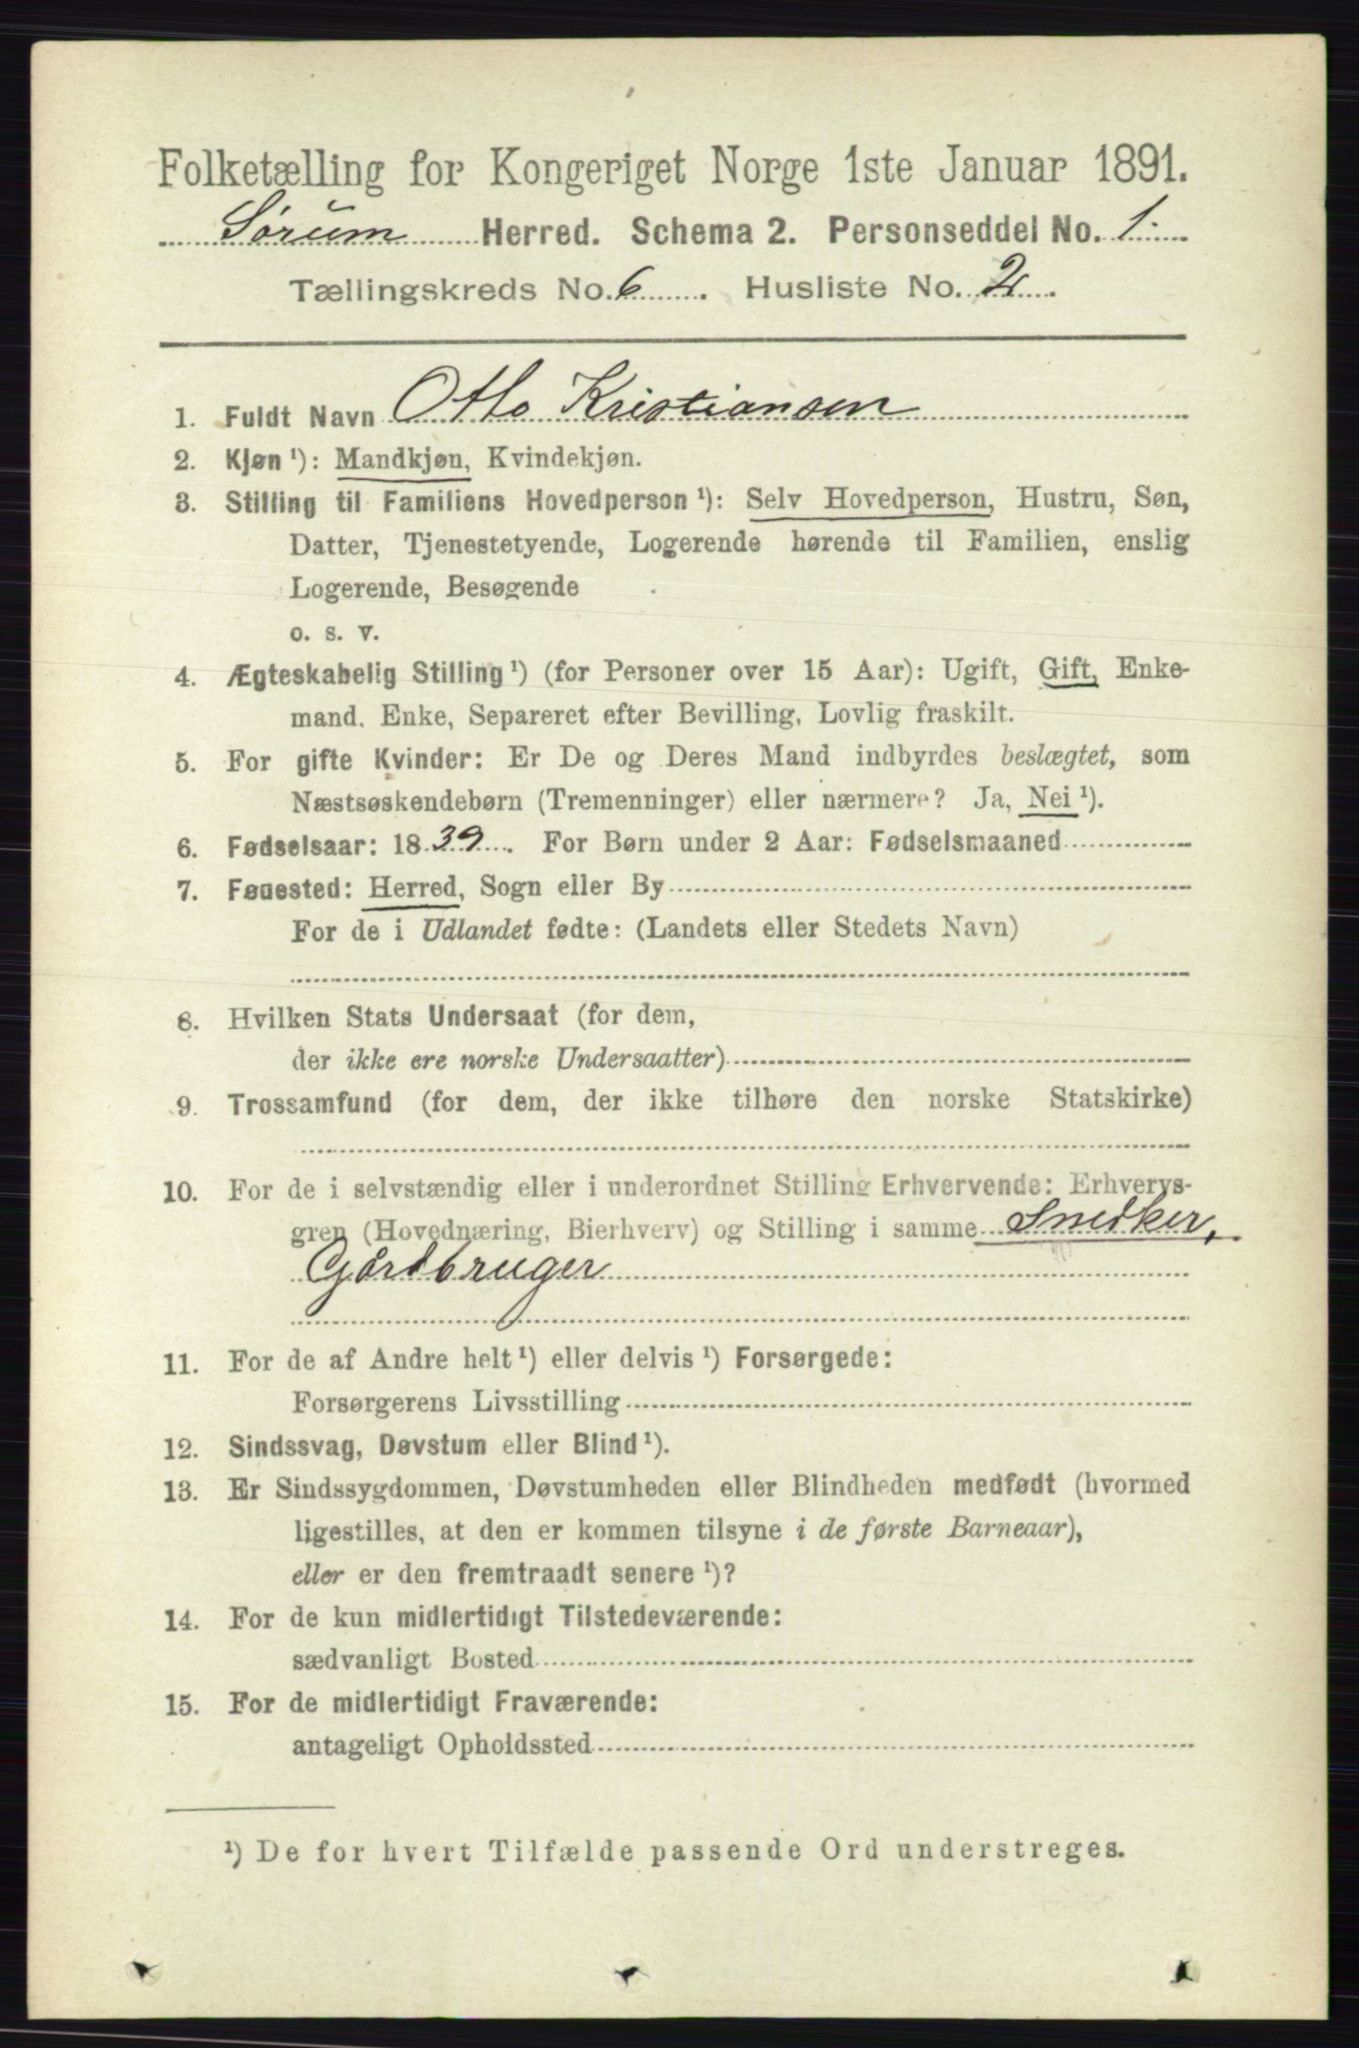 Folketælling for Kongeriget Norge 1ste Januar 1891.
Sørum Herred. Schema 2. Personseddel No. 1.
Tællingskreds No. 6. Husliste No. 2.
1. Fuldt Navn Otto Kristiansen
2. Kjøn ¹): Mandkjøn, Kvindekjøn.
3. Stilling til Familiens Hovedperson ¹): Selv Hovedperson, Hustru, Søn,
Datter, Tjenestetyende, Logerende hørende til Familien, enslig
Logerende, Besøgende
o. s. v.
4. Ægteskabelig Stilling ¹) (for Personer over 15 Aar): Ugift, Gift, Enke-
mand, Enke, Separeret efter Bevilling, Lovlig fraskilt.
5. For gifte Kvinder: Er De og Deres Mand indbyrdes beslægtet, som
Næstsøskendebørn (Tremenninger) eller nærmere? Ja, Nei ¹).
6. Fødselsaar: 1839. For Børn under 2 Aar: Fødselsmaaned
7. Fødested: Herred, Sogn eller By
For de i Udlandet fødte: (Landets eller Stedets Navn)
8. Hvilken Stats Undersaat (for dem,
der ikke ere norske Undersaatter)
9. Trossamfund (for dem, der ikke tilhøre den norske Statskirke)
10. For de i selvstændig eller i underordnet Stilling Erhvervende: Erhvervs-
gren (Hovednæring, Bierhverv) og Stilling i samme Snedker,
Gårdbruger
11. For de af Andre helt ¹) eller delvis ¹) Forsørgede:
Forsørgerens Livsstilling
12. Sindssvag, Døvstum eller Blind ¹).
13. Er Sindssygdommen, Døvstumheden eller Blindheden medfødt (hvormed
ligestilles, at den er kommen tilsyne i de første Barneaar),
eller er den fremtraadt senere ¹)?
14. For de kun midlertidigt Tilstedeværende:
sædvanligt Bosted
15. For de midlertidigt Fraværende:
antageligt Opholdssted
¹) De for hvert Tilfælde passende Ord understreges.